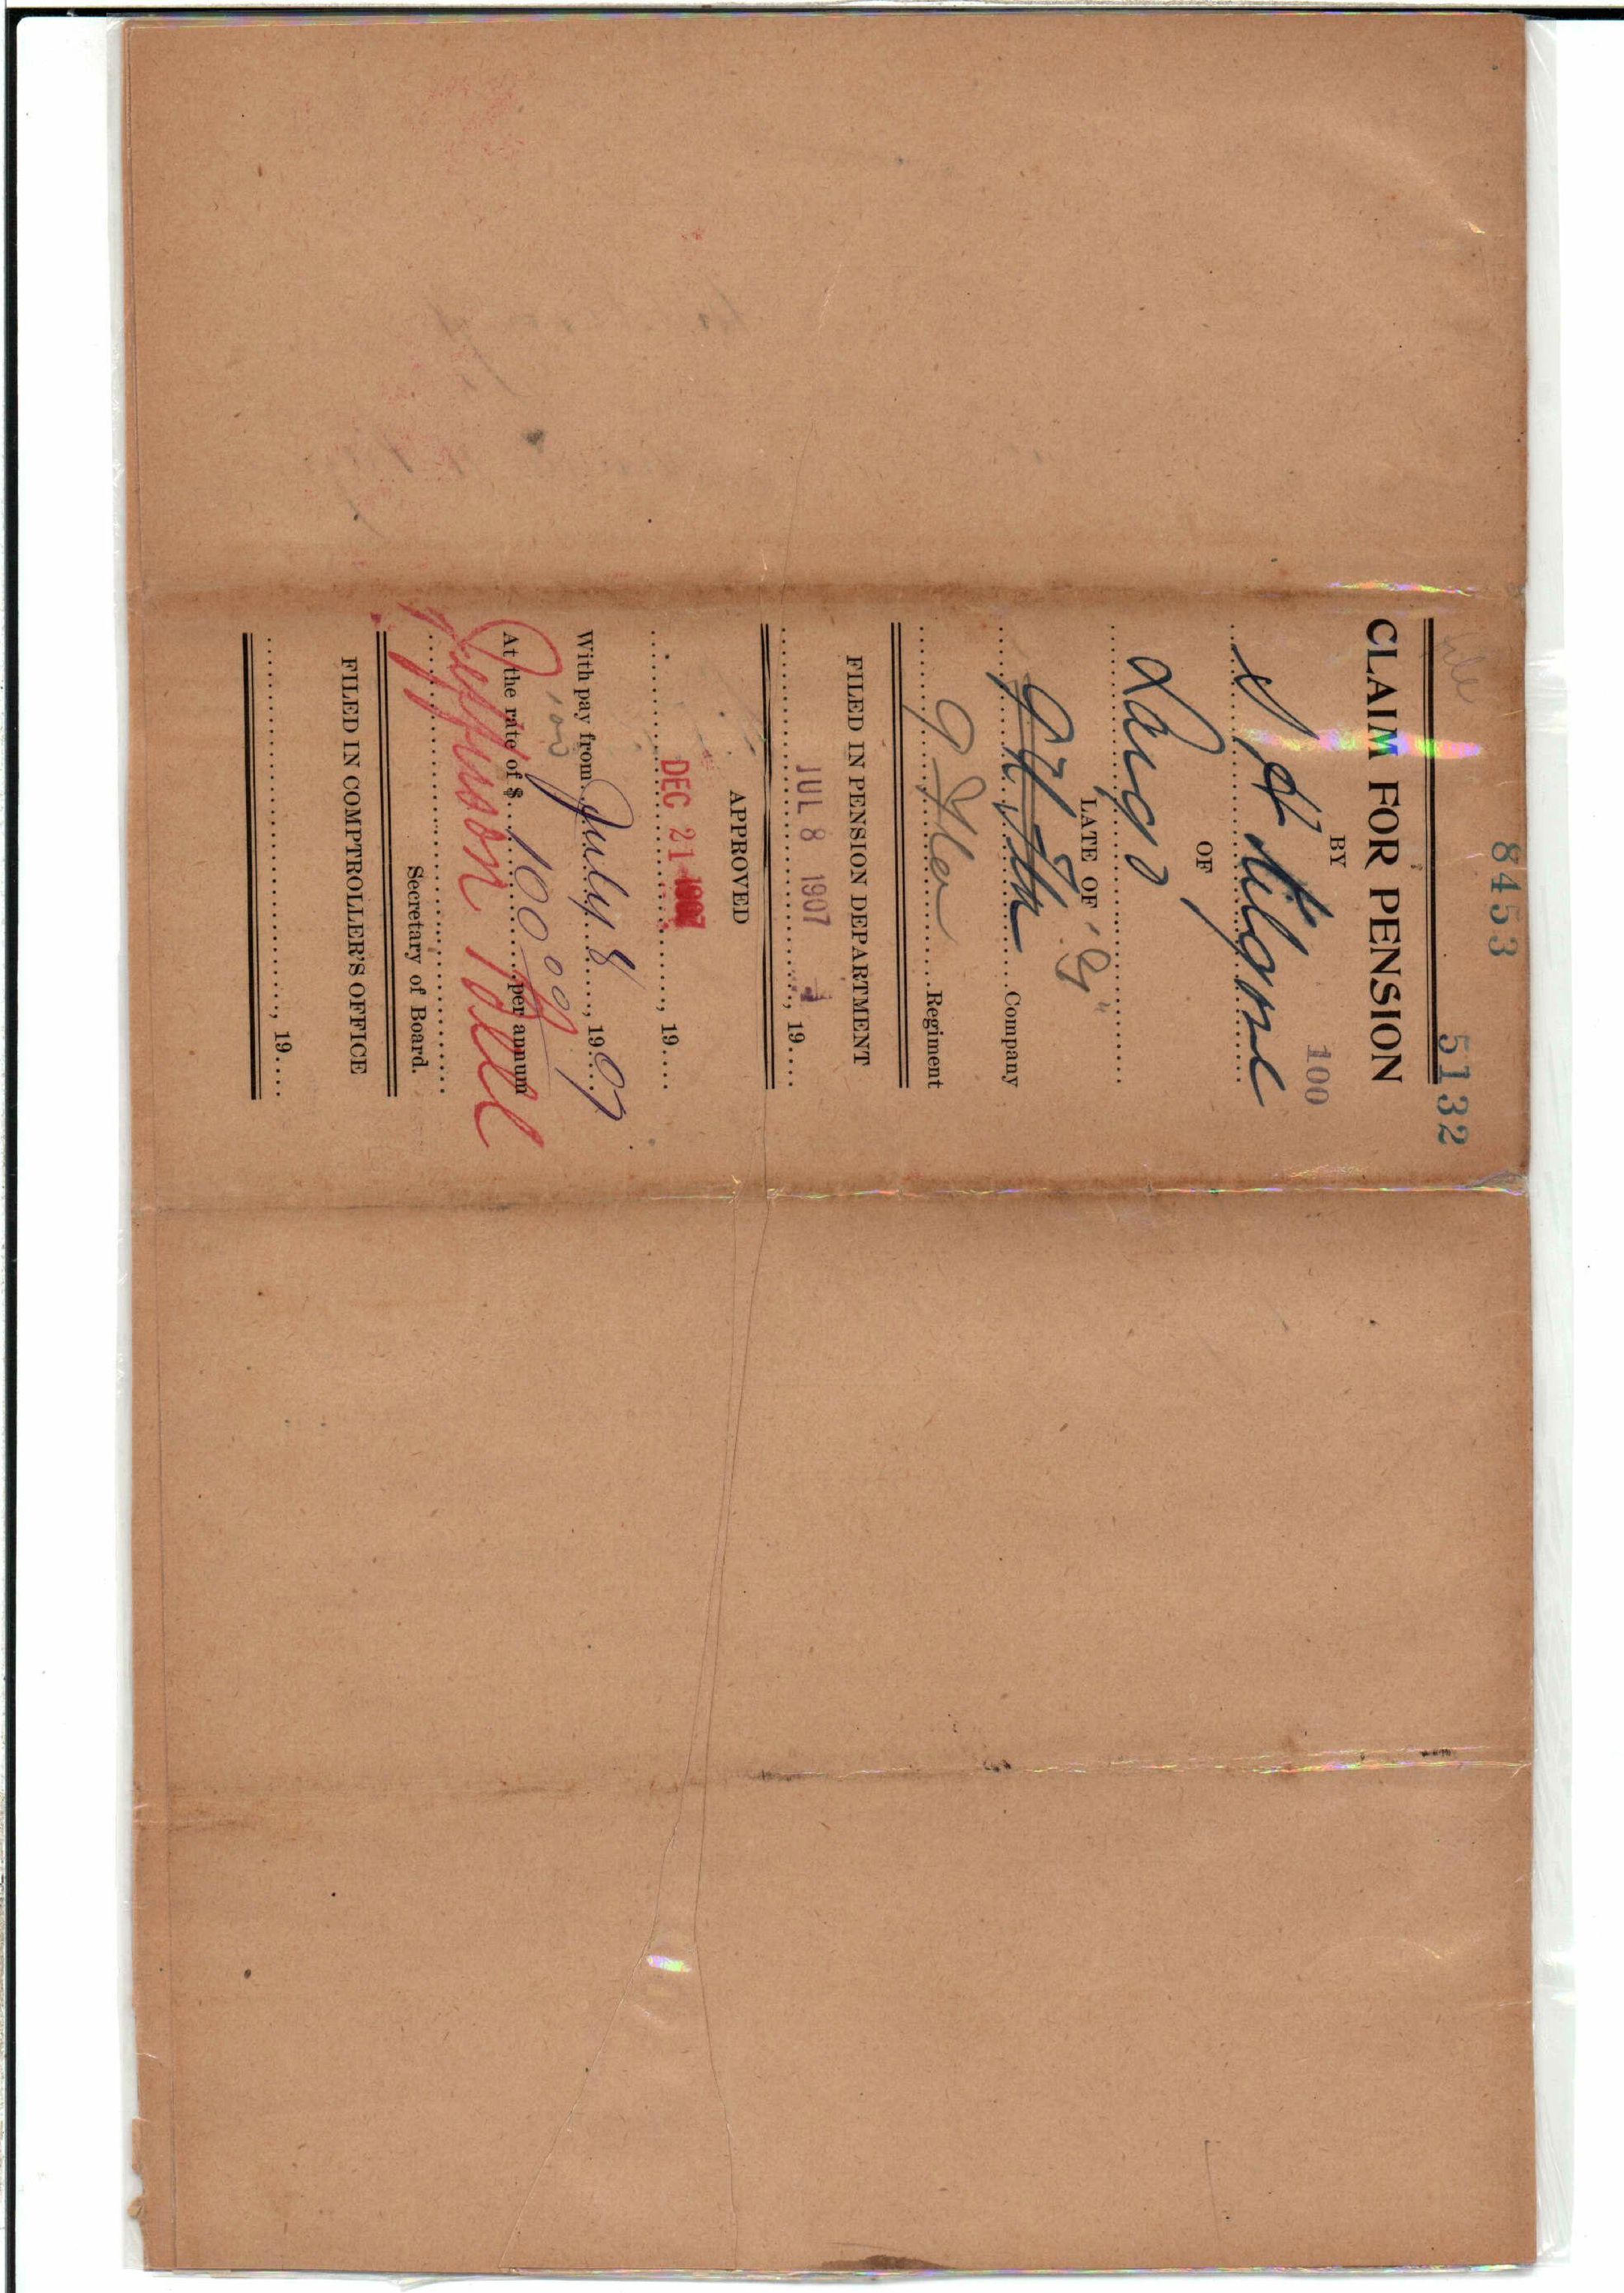 8453
5132
CLAIM FOR PENSION
100
BY
S H Kilgore
OF
Largo
LATE OF "G"
9th Fla Company
9 Fla Regiment
FILED IN PENSION DEPARTMENT
JUL 8 1907
, 19....
APPROVED
DEC 21 1907
, 19....
With pay from July 8, 1907
100
At the rate of $ 100 00 per annum
Jefferson Bell
Secretary of Board.
FILED IN COMPTROLLER'S OFFICE
, 19....